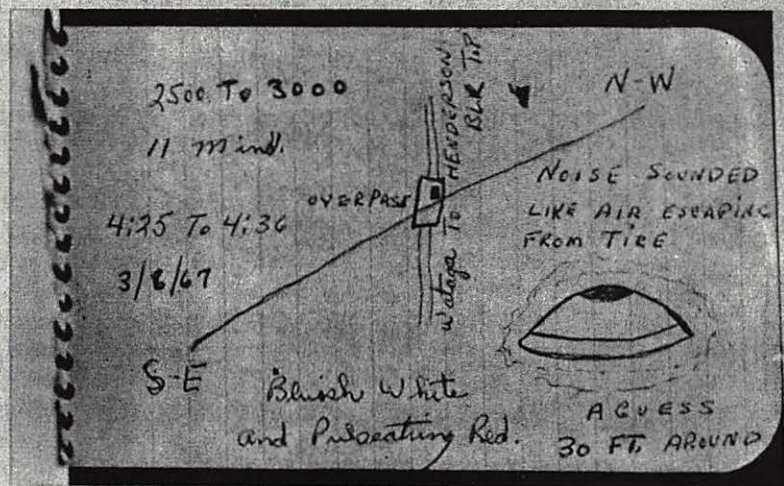 2500 To 3000
11 mins.
4:25 To 4:36
3/8/67
S-E
OVERPASS
Wataga To HENDERSON
BLK TP
N-W
NOISE SOUNDED
LIKE AIR ESCAPING
FROM TIRE
Bluish White
and Pulseating Red.
A GUESS
30 FT. AROUND